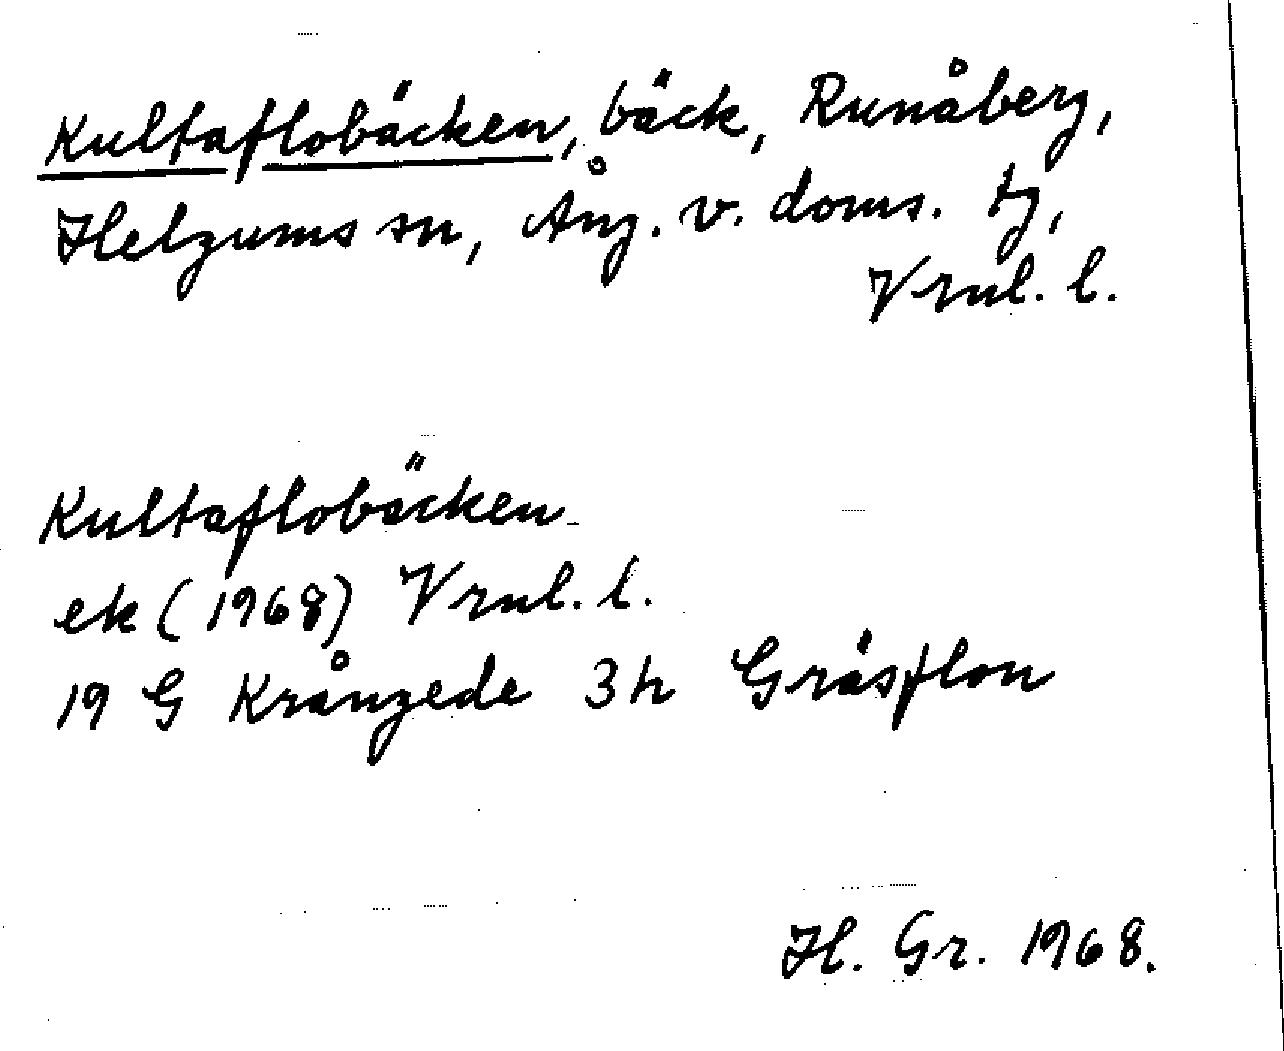 Kultaflobäcken, bäck, Runåberg,
Helgums sn, Ång. v. doms. tg,
Vrnl. l.
Kultaflobäcken
ek (1968) Vrnl. l.
19 G Krångede 3h Gräsflon
H. Gr. 1968.